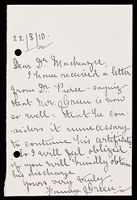 22/8/10.
Dear Dr. Mackenzie,
I have received a letter
from Dr. Price saying
that Mr. Green is now
so well that he con-
siders it unnecessary
to continue his certificate
so I will feel obliged
if you will kindly obtain
his discharge
Yours very truly